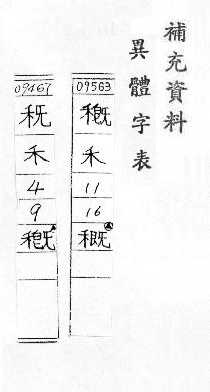 補充資料
異體字表
09563
穊
禾
11
16
09467
禾
4
9
穊